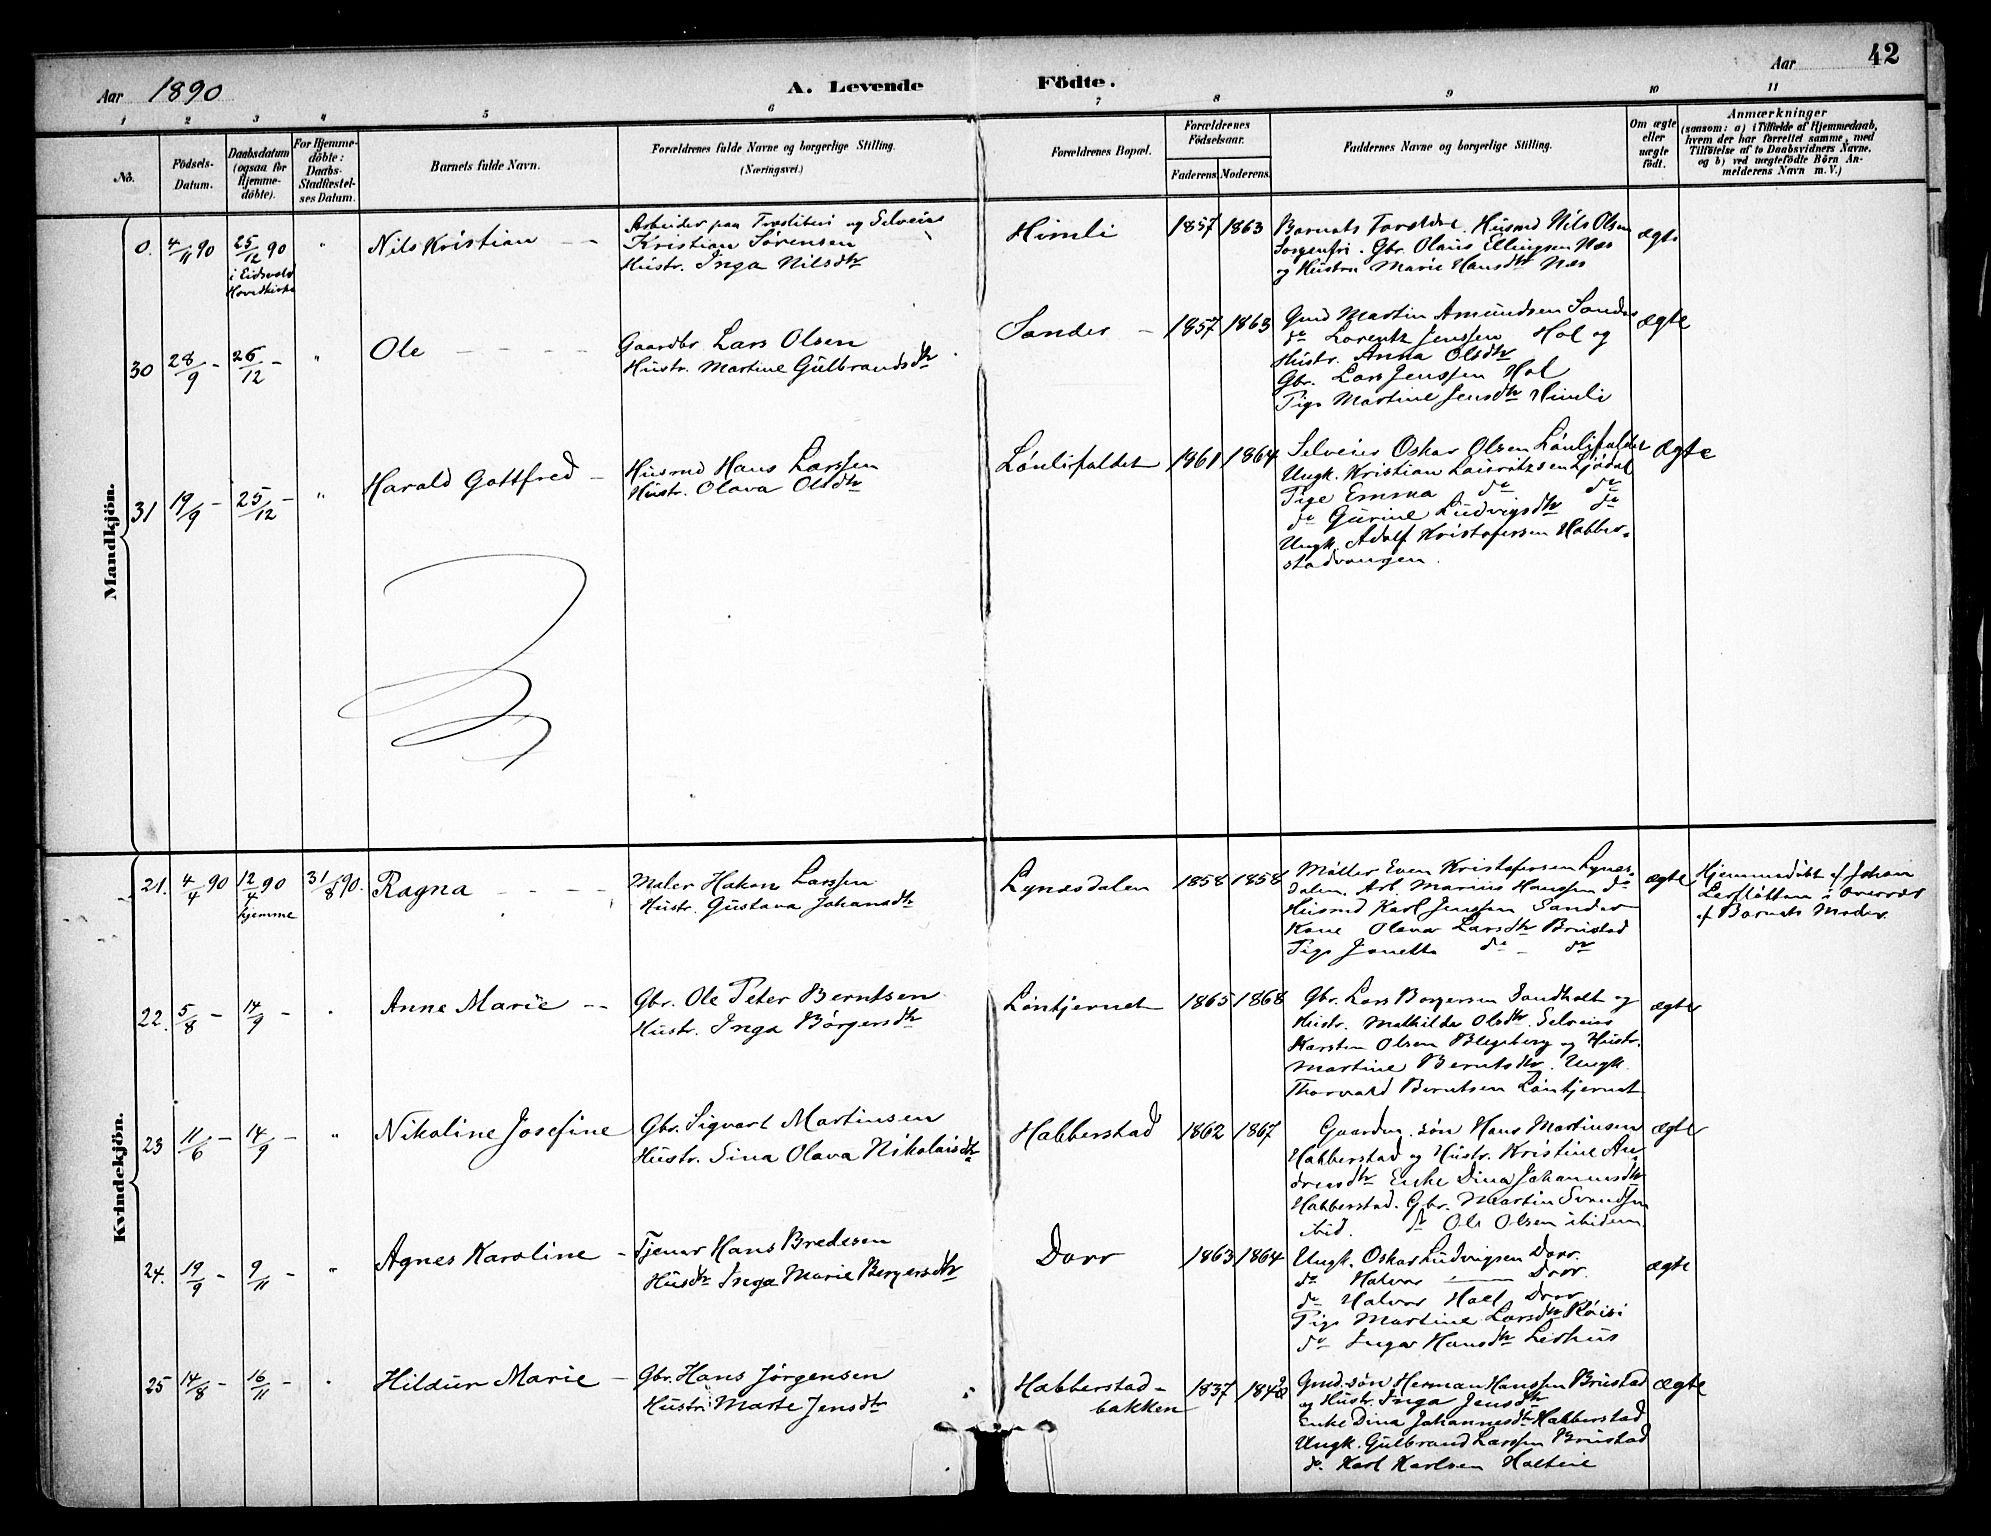 42
Aar 1890
A. Levende Födte.
Aar
1 2 3 4 5 6 7 8 9 10 11
No.
Födsels-
Datum.
Daabsdatum
(ogsaa for
Hjemme-
döbte).
For Hjemme-
döbte:
Daabs-
Stadfæstel-
ses Datum.
Barnets fulde Navn.
Forældrenes fulde Navne og borgerlige Stilling.
(Næringsvei.)
Forældrenes Bopæl.
Forældrenes
Födselsaar.
Faderens. Moderens.
Faddernes Navne og borgerlige Stilling.
Om ægte
eller
uægte
födt.
Anmærkninger
(saasom: a) i Tilfælde af Hjemmedaab,
hvem der har forrettet samme, med
Tilföielse af to Daabsvidners Navne,
og b) ved uægtefödte Börn An-
melderens Navn m. V.)
Mandkjön.
0. 4/11 90 25/12 90 " Nils Kristian
i Eidsvold
Hovedkirke
Arbeider paa Træsliberi og Selveier
Kristian Sørensen
Hustr. Inga Nilsdtr
Himli 1857 1863
Barnets Forældre. Husmd Nils Olsen
Sorgenfri. Gbr. Olaus Ellingsen Næs
og Hustru Marie Hansdtr Næs
ægte
30 28/9 - 26/12 - " Ole
Gaardbr Lars Olsen
Hustr. Martine Gulbrandsdtr
Sander 1857 1863
Gmd Martin Amundsen Sander
do Lorentz Jenssen Hol og
Hustr. Anna Olsdtr
Gbr. Lars Jenssen Hol
Pige Martine Jensdtr Himli
ægte
31 19/9 25/12 - " Harald Gottfred
Husmd Hans Larssen
Hustr. Olava Olsdtr
Lønlifaldet 1861 1864
Selveier Oskar Olsen Lønlifaldet
Ungk. Kristian Lauritzsen Ljødal
Pige Emma do do
do Gurine Ludvigsdtr do
Ungk. Adolf Kristofersen Habber-
stadvangen.
ægte
Kvindekjön.
21. 4/4 90 12/4 90 31/8 90. Ragna
hjemme
Maler Hakon Larssen
Hustr. Gustava Johansdtr
Lynesdalen 1858 1858
Møller Even Kristofersen Lynes-
dalen. Arb. Marius Hanssen do
Husmd Karl Jenssen Sander
Kone Olava Larsdtr Brustad
Pige Janette do - do
ægte
Hjemmedøbt af Johan
i Overvær
af Barnets Moder.
22. 5/8 - 14/9 - Anne Marie
Gbr. Ole Peter Berntsen
Hustr. Inga Børgersdtr
Løntjernet 1865 1868
Gbr. Lars Borgersen Sandholt og
Hustr. Mathilde Olsdtr. Selveier
Karsten Olsen og Hustr.
Martine Berntsdtr. Ungk.
Thorvald Berntsen Løntjernet
ægte
23 11/6 - 14/9 - " Nikoline Josefine
Gbr. Sigvart Martinsen
Hustr. Sina Olava Nikolaisdtr
Habberstad 1862 1867
Gaardm. søn Hans Martinsen
Habberstad og Hustr. Kristine An-
dreasdtr Enke Dina Johannesdtr
Habberstad. Gbr. Martin Svendsen
ibid. do Ole Olsen ibidem
ægte
24. 19/9 - 9/11 - " Agnes Karoline
Tjener Hans Bredesen
Husdtr Inga Marie Bergersdtr
Dorr 1863 1864
Ungk. Oskar Ludvigsen Dorr.
do Halvor Dorr.
do Halvor Hoel Dorr.
Pige Martine Larsdtr Røisi
do Inga Hansdtr Lerhus
ægte
25 14/8 - 16/11 - Hildur Marie
Gbr. Hans Jørgensen
Hustr. Marte Jensdtr
Habberstad-
bakken
1837 1848
Gmd. søn Herman Hanssen Brustad
og Hustr. Inga Jensdtr
Enke Dina Johannesdtr Habberstad
Ungk. Gulbrand Larssen Brustad
do. Karl Karlsen Holtine
ægte